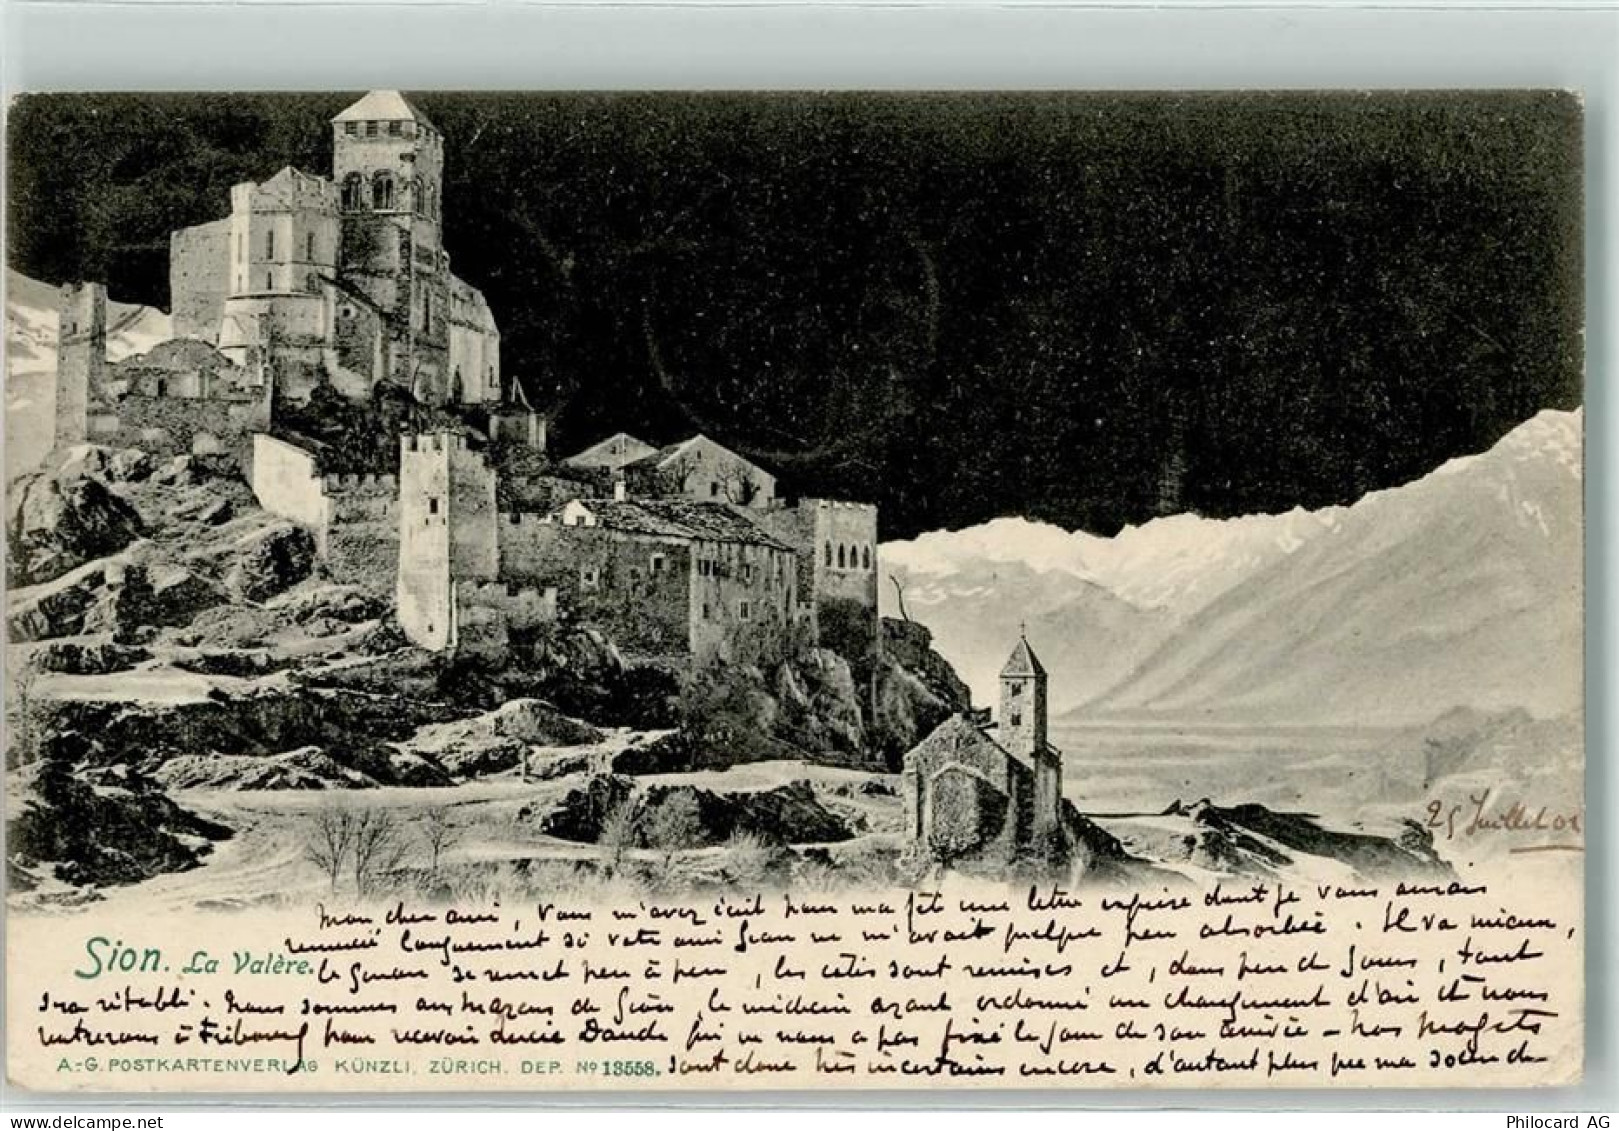 25 Juillet 02
mon cher ami, vous m'avez écrit pour ma fête une lettre exquise dont je vous aurais
remercié longuement si votre ami Jean ne m'avait quelque peu absorbée. Il va mieux,
Sion. La Valère.
le genou se remet peu à peu, les côtes sont remises et, dans peu de jours, tout
sera rétabli. Nous sommes aux Mayens de Sion, le médecin ayant ordonné un changement d'air et nous
rentrerons à Fribourg pour recevoir Lucie Daude qui ne nous a pas fixé le jour de son arrivée – nos projets
A.-G. POSTKARTENVERLAG KÜNZLI, ZÜRICH. DEP. No 13558.
sont donc très incertains encore, d'autant plus que ma soeur de
Philocard AG